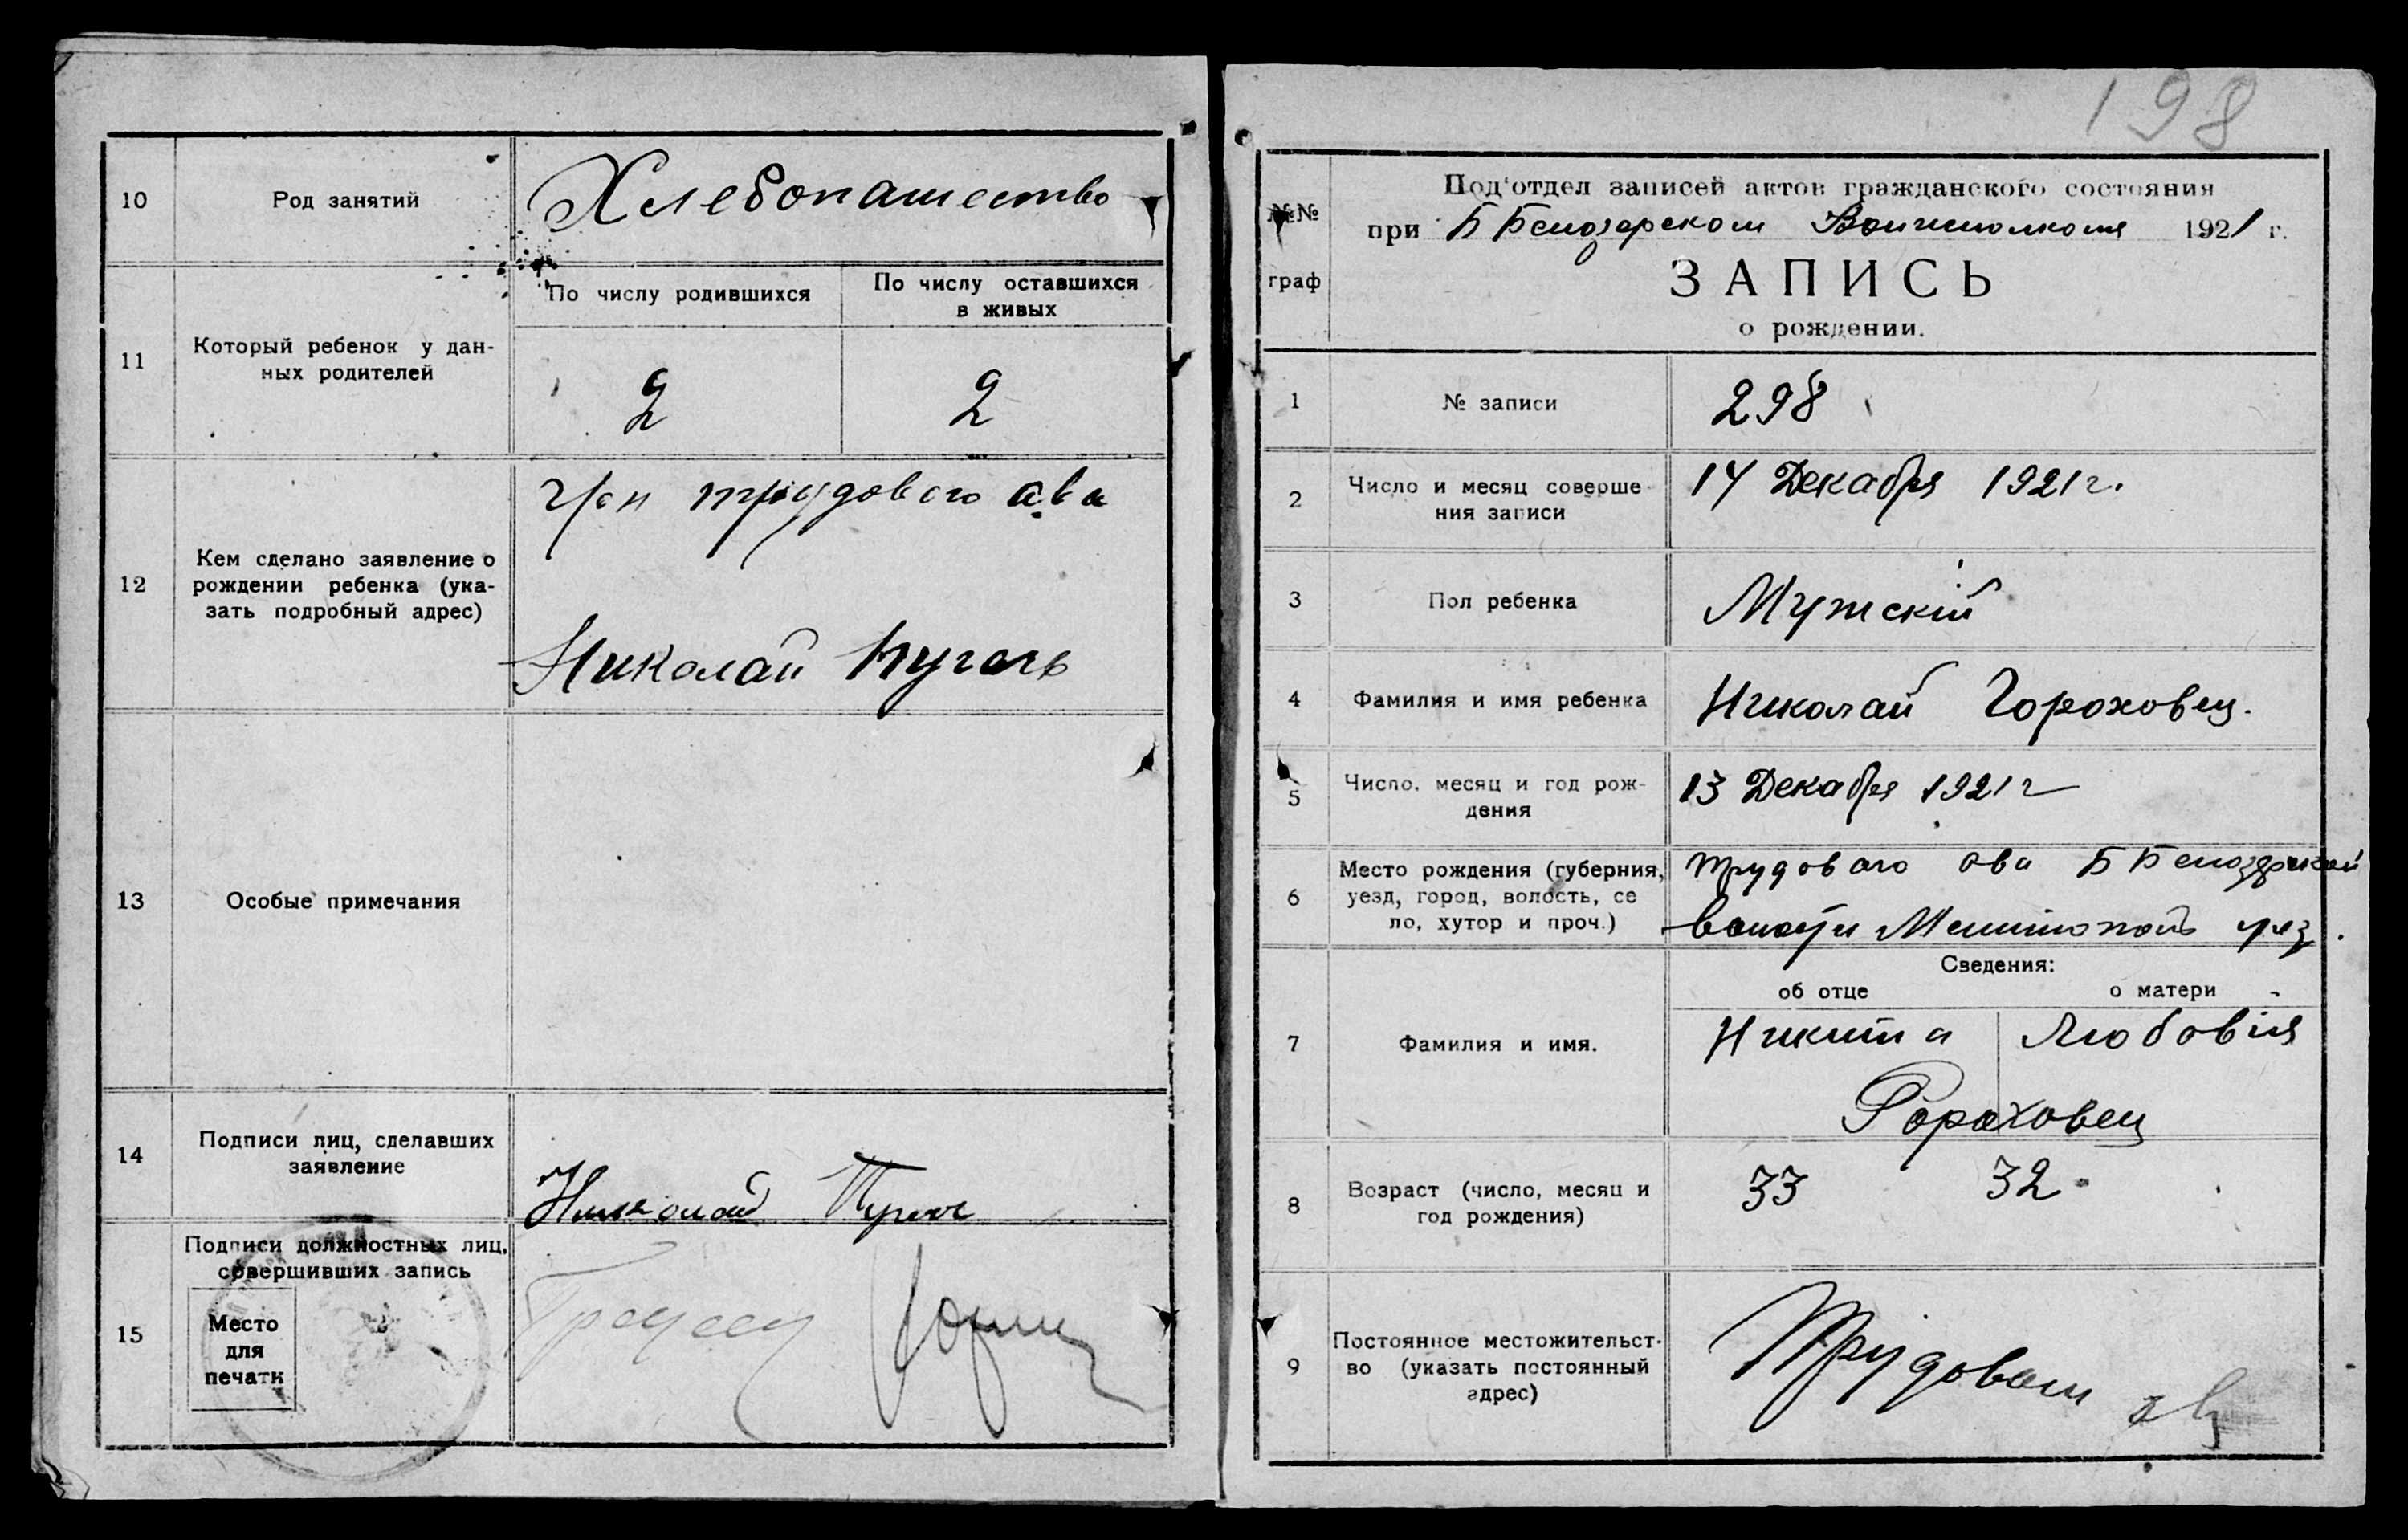 10
Род занятий
Хлебопашество
11
Который ребенок у дан-
ных родителей
По числу родившихся
По числу оставшихся
в живых
2
2
12
Кем сделано заявление о
рождении ребенка (ука-
зать подробный адрес)
трудового ова
Николай
13
Особые примечания
14
Подписи лиц, сделавших
заявление
Николай
15
Подписи должностных лиц,
совершивших запись
Место
для
печати
198
№№
граф
Под'отдел записей актов гражданского состояния
при Б Белозерском Волисполкоме 1921 г.
ЗАПИСЬ
о рождении.
1
№ записи
298
2
Число и месяц соверше-
ния записи
14 Декабря 1921 г.
3
Пол ребенка
Мужскій
4
Фамилия и имя ребенка
Николай Гороховец.
5
Число, месяц и год рож-
дения
13 Декабря 1921 г
6
Место рождения (губерния,
уезд, город, волость, се
ло, хутор и проч.)
Трудового ова Б Белозерской
волости Мелитопол уез.
Сведения:
об отце
о матери
7
Фамилия и имя.
Никита
Любовія
Гороховец
8
Возраст (число, месяц и
год рождения)
33
32
9
Постоянное местожительст-
во (указать постоянный
адрес)
Трудовом